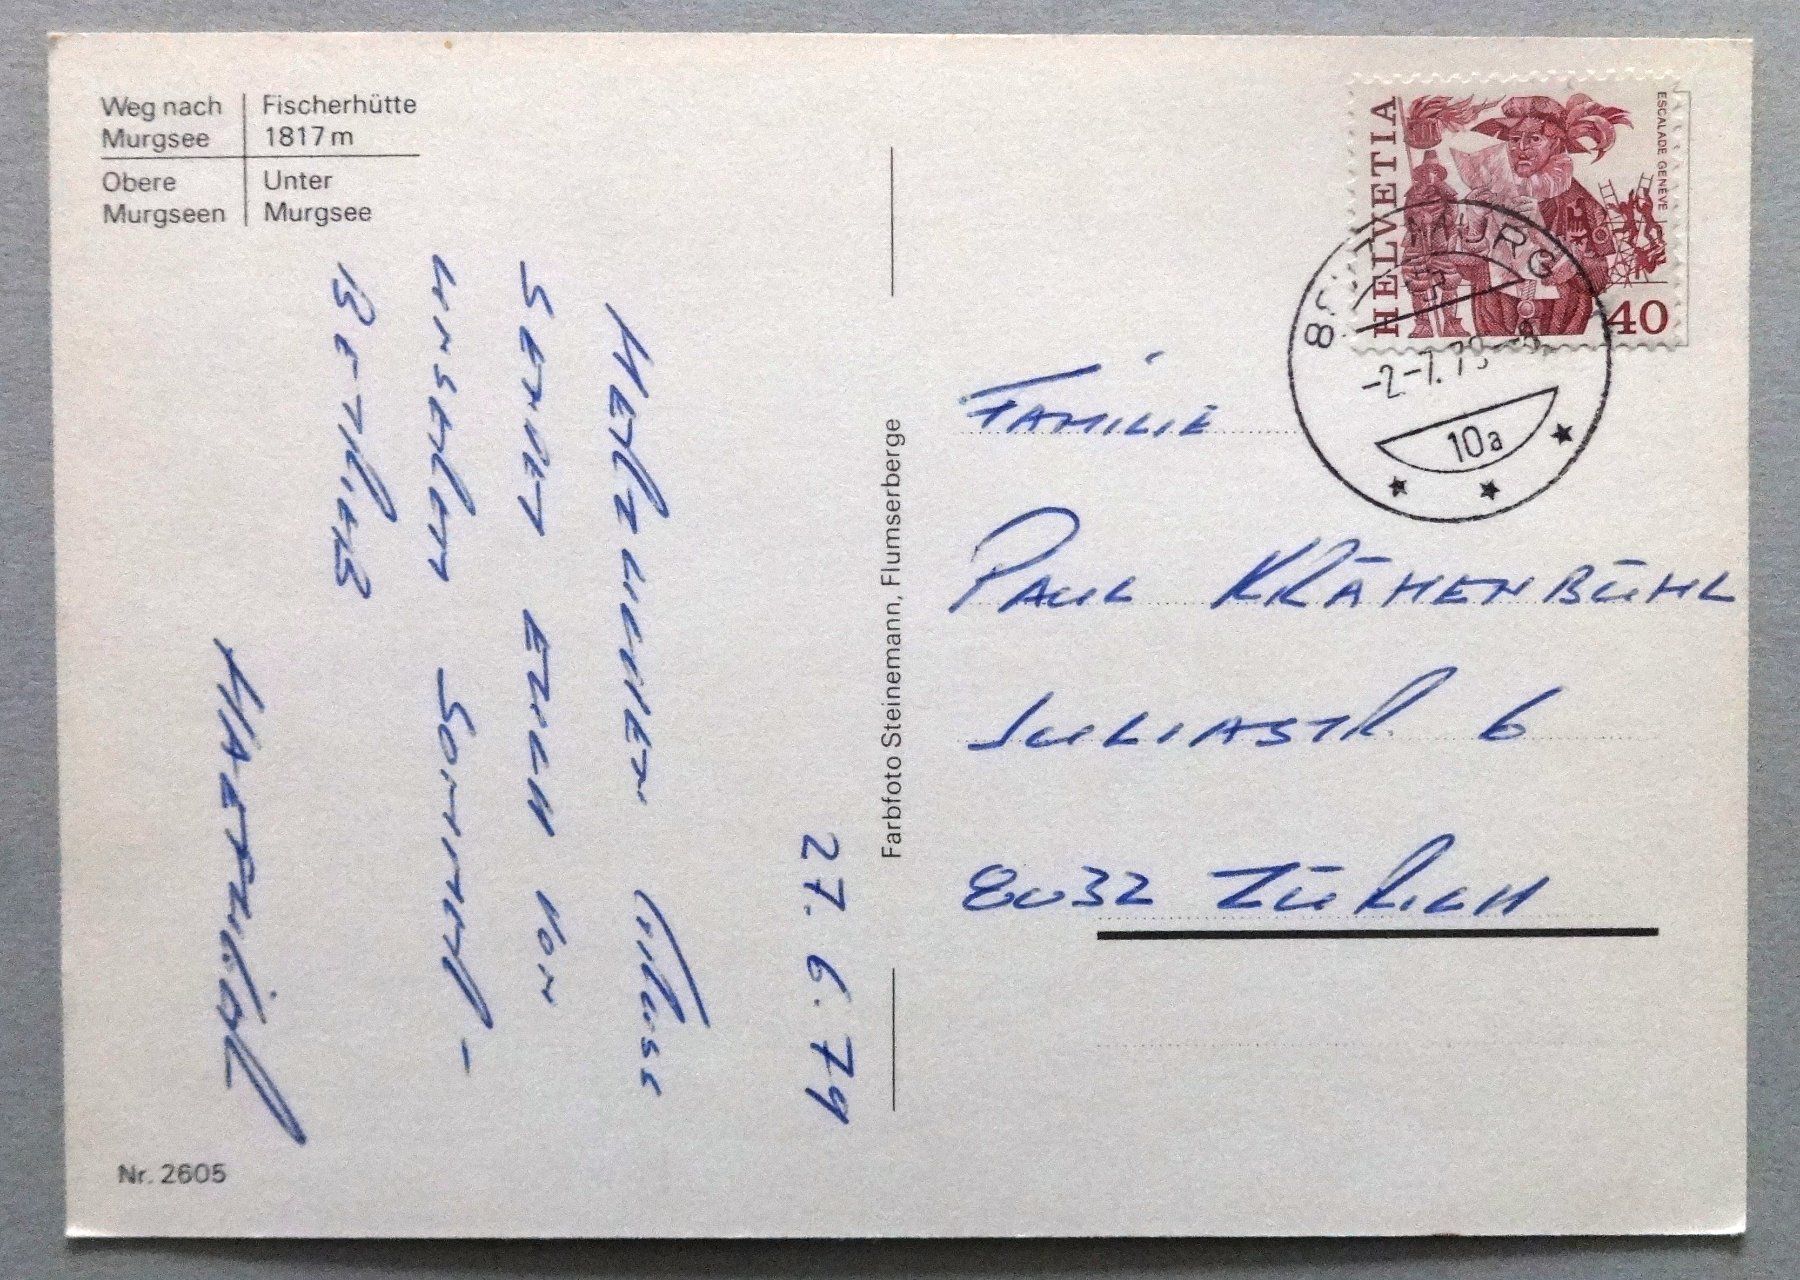 Weg nach Murgsee
Fischerhütte 1817 m
Obere Murgseen
Unter Murgsee
27. 6. 79
HERZLICHEN GRÜSSE
SENDET EUCH VON
UNSEREM SOMMER-
BETRIEB
Nr. 2605
Farbfoto Steinemann, Flumserberge
HELVETIA
ESCALADE GENÈVE
40
MURG
-2.-7.79.-9
10a
FAMILIE
PAUL KRÄHENBÜHL
JULIASTR. 6
8032 ZÜRICH